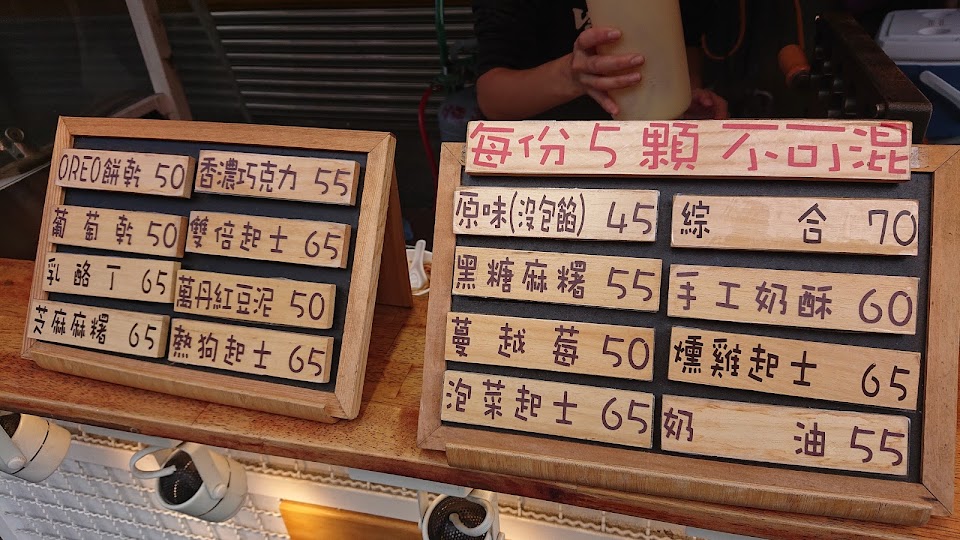 OREO餅乾 50
香濃巧克力 55
葡萄乾 50
雙倍起士 65
乳酪丁 65
萬丹紅豆泥 50
芝麻麻糬 65
熱狗起士 65
每份5顆不可混
原味(沒包餡) 45
綜合 70
黑糖麻糬 55
手工奶酥 60
蔓越莓 50
燻雞起士 65
泡菜起士 65
奶油 55